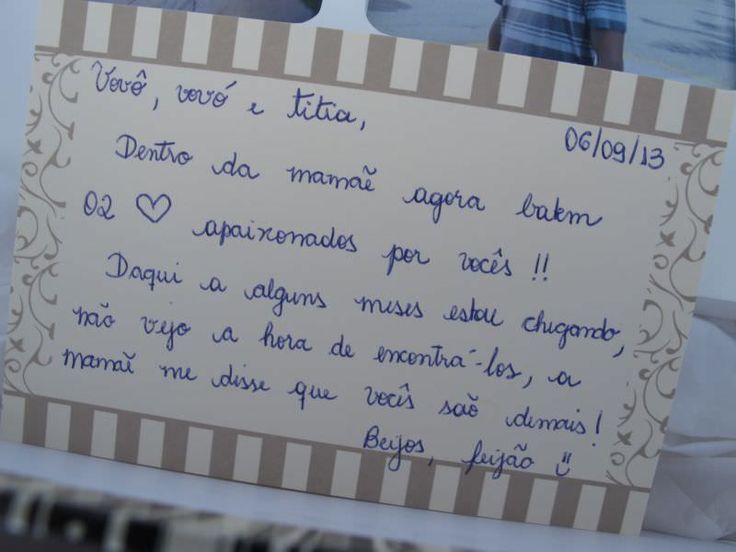 Vovô, vovó e titia,
06/09/13
Dentro da mamãe agora batem
02 ♡ apaixonados por vocês !!
Daqui a alguns meses estou chegando,
não vejo a hora de encontrá-los, a
mamãe me disse que vocês são demais!
Beijos, feijão